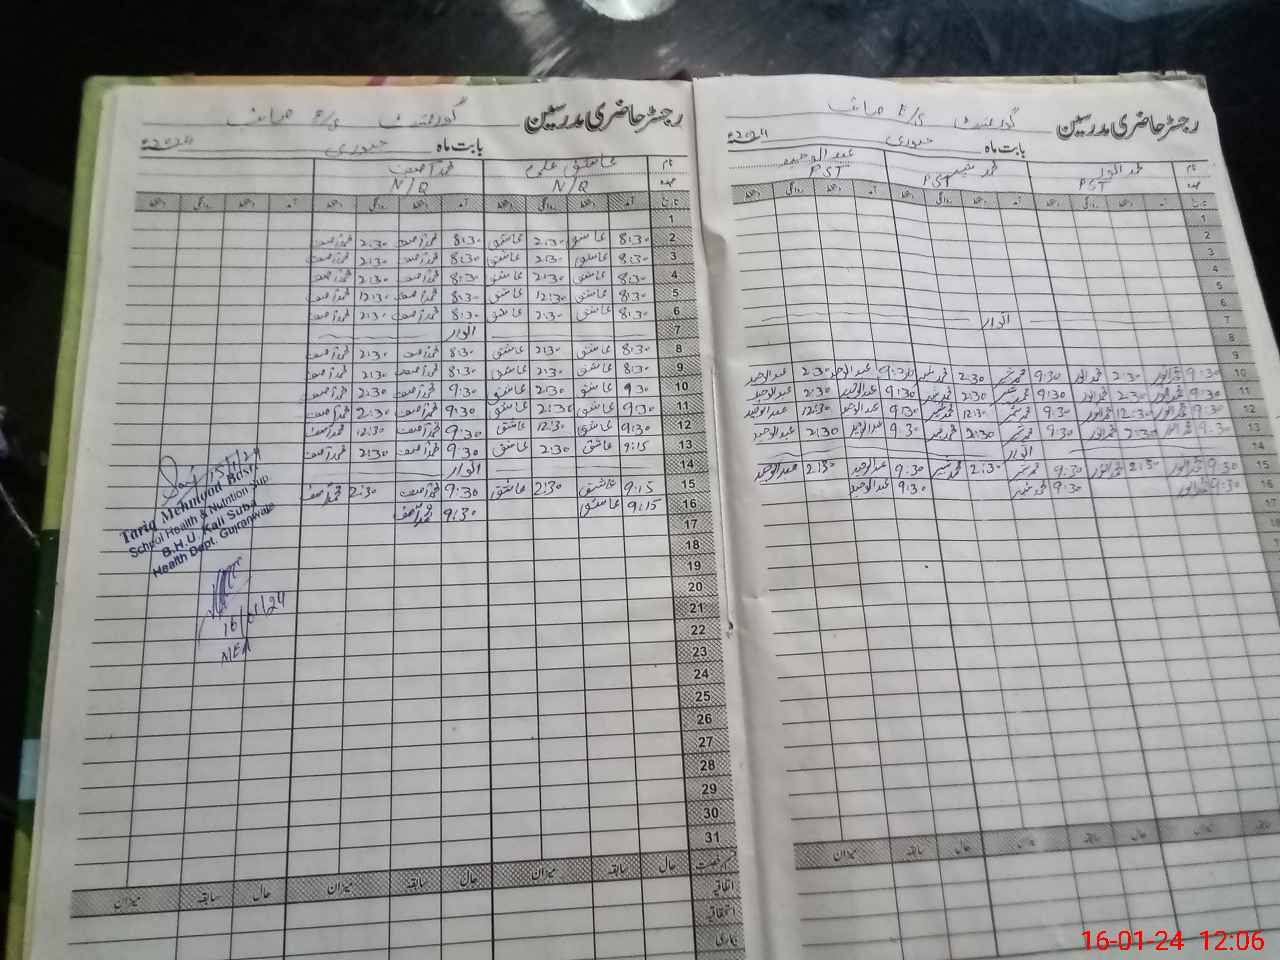 رجسٹر حاضری مدرسین گورنمنٹ E/S
بابت ماہ جنوری 2024ء
نام محمد انور
عہدہ PST PST PST
تاریخ آمد دستخط روانگی دستخط آمد دستخط روانگی دستخط آمد دستخط روانگی دستخط
1
2
3
4
5
6
7 اتوار
8
9
10 9:30 محمد انور 2:30 محمد انور 9:30 2:30 9:30 عبدالوحید 2:30 عبدالوحید
11 9:30 محمد انور 2:30 محمد انور 9:30 2:30 9:30 عبدالوحید 2:30 عبدالوحید
12 9:30 محمد انور 12:30 محمد انور 9:30 12:30 9:30 عبدالوحید 12:30 عبدالوحید
13 9:30 محمد انور 2:30 محمد انور 9:30 2:30 9:30 عبدالوحید 2:30 عبدالوحید
14 اتوار
15 9:30 محمد انور 2:30 محمد انور 9:30 2:30 9:30 عبدالوحید 2:30 عبدالوحید
16 9:30 محمد انور 9:30 9:30 عبدالوحید
17
18
میزان سابقہ حال میزان سابقہ حال میزان
رجسٹر حاضری مدرسین گورنمنٹ E/S
بابت ماہ جنوری 2024ء
نام عاشق محمد آصف
عہدہ N/Q N/Q
تاریخ آمد دستخط روانگی دستخط آمد دستخط روانگی دستخط آمد دستخط روانگی دستخط
1
2 8:30 عاشق 2:30 عاشق 8:30 محمد آصف 2:30 محمد آصف
3 8:30 عاشق 2:30 عاشق 8:30 محمد آصف 2:30 محمد آصف
4 8:30 عاشق 2:30 عاشق 8:30 محمد آصف 2:30 محمد آصف
5 8:30 عاشق 12:30 عاشق 8:30 محمد آصف 12:30 محمد آصف
6 8:30 عاشق 2:30 عاشق 8:30 محمد آصف 2:30 محمد آصف
7 اتوار
8 8:30 عاشق 2:30 عاشق 8:30 محمد آصف 2:30 محمد آصف
9 8:30 عاشق 2:30 عاشق 8:30 محمد آصف 2:30 محمد آصف
10 9:30 عاشق 2:30 عاشق 9:30 محمد آصف 2:30 محمد آصف
11 9:30 عاشق 2:30 عاشق 9:30 محمد آصف 2:30 محمد آصف
12 9:30 عاشق 12:30 عاشق 9:30 محمد آصف 12:30 محمد آصف
13 9:15 عاشق 2:30 عاشق 9:30 محمد آصف 2:30 محمد آصف
14 اتوار
15 9:15 عاشق 2:30 عاشق 9:30 محمد آصف 2:30 محمد آصف
16 9:15 عاشق 9:30 محمد آصف
17
18
19
20
21
22
23
24
25
26
27
28
29
30
31
حال سابقہ میزان حال سابقہ میزان حال سابقہ میزان
اتفاقیہ
استحقاقیہ
بیماری
15/1/24
Tariq Mehmood Butt
School Health & Nutrition Sup
B.H.U. Kali Suba
Health Dept. Gujranwala
16/01/24
MEA
16-01-24 12:06